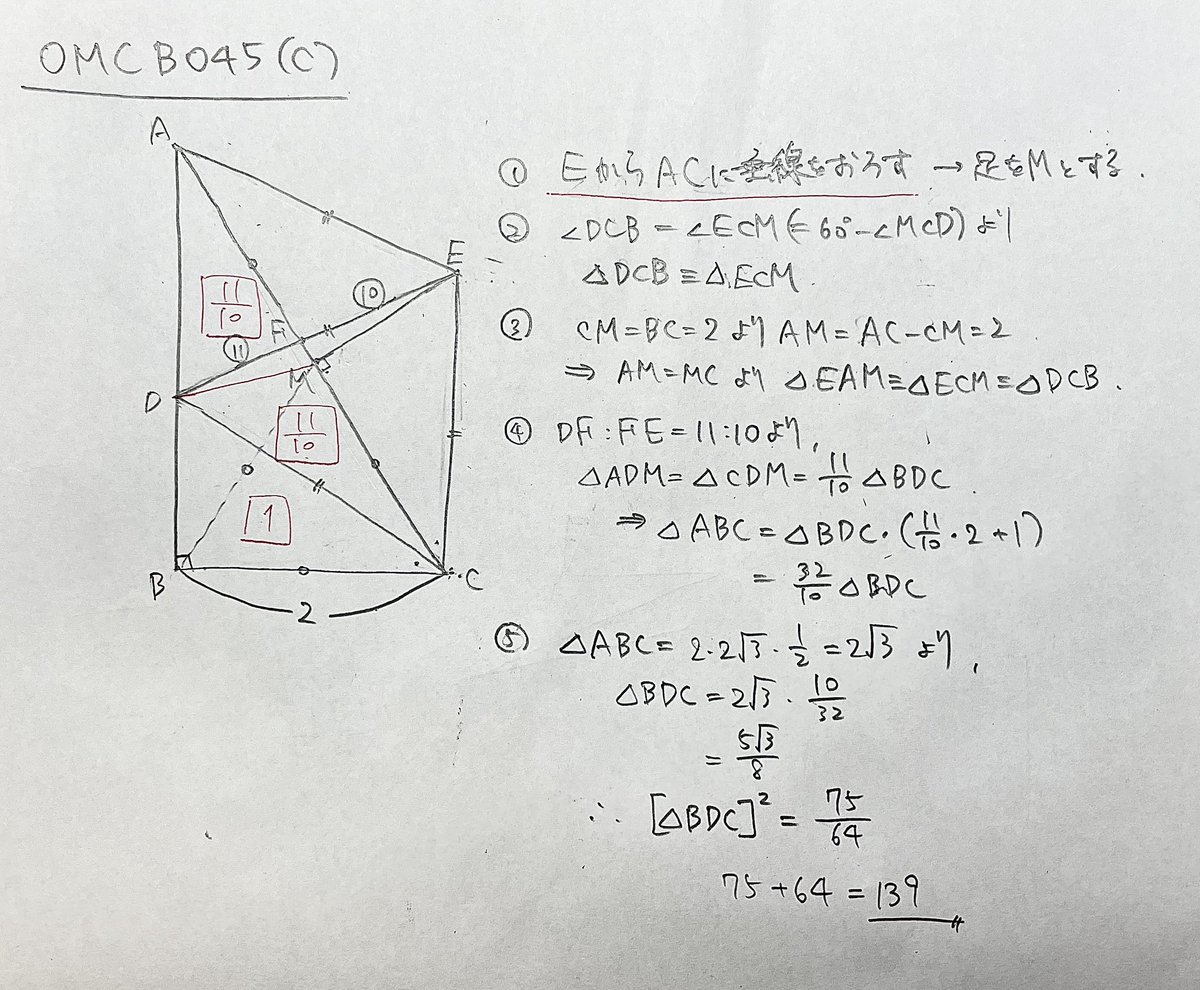 OMCB045(C)
A
E
11/10
⑩
F
⑪
M
D
11/10
1
B
C
2
① EからACに垂線をおろす → 足をMとする.
② ∠DCB = ∠ECM (= 60° - ∠MCD) より
△DCB ≡ △ECM.
③ CM = BC = 2 より AM = AC - CM = 2
⇒ AM = MC より △EAM ≡ △ECM ≡ △DCB.
④ DF : FE = 11 : 10 より,
△ADM = △CDM = 11/10 △BDC
⇒ △ABC = △BDC・(11/10・2 + 1)
= 32/10 △BDC
⑤ △ABC = 2・2√3・1/2 = 2√3 より,
△BDC = 2√3・10/32
= 5√3/8
∴ [△BDC]² = 75/64
75 + 64 = 139